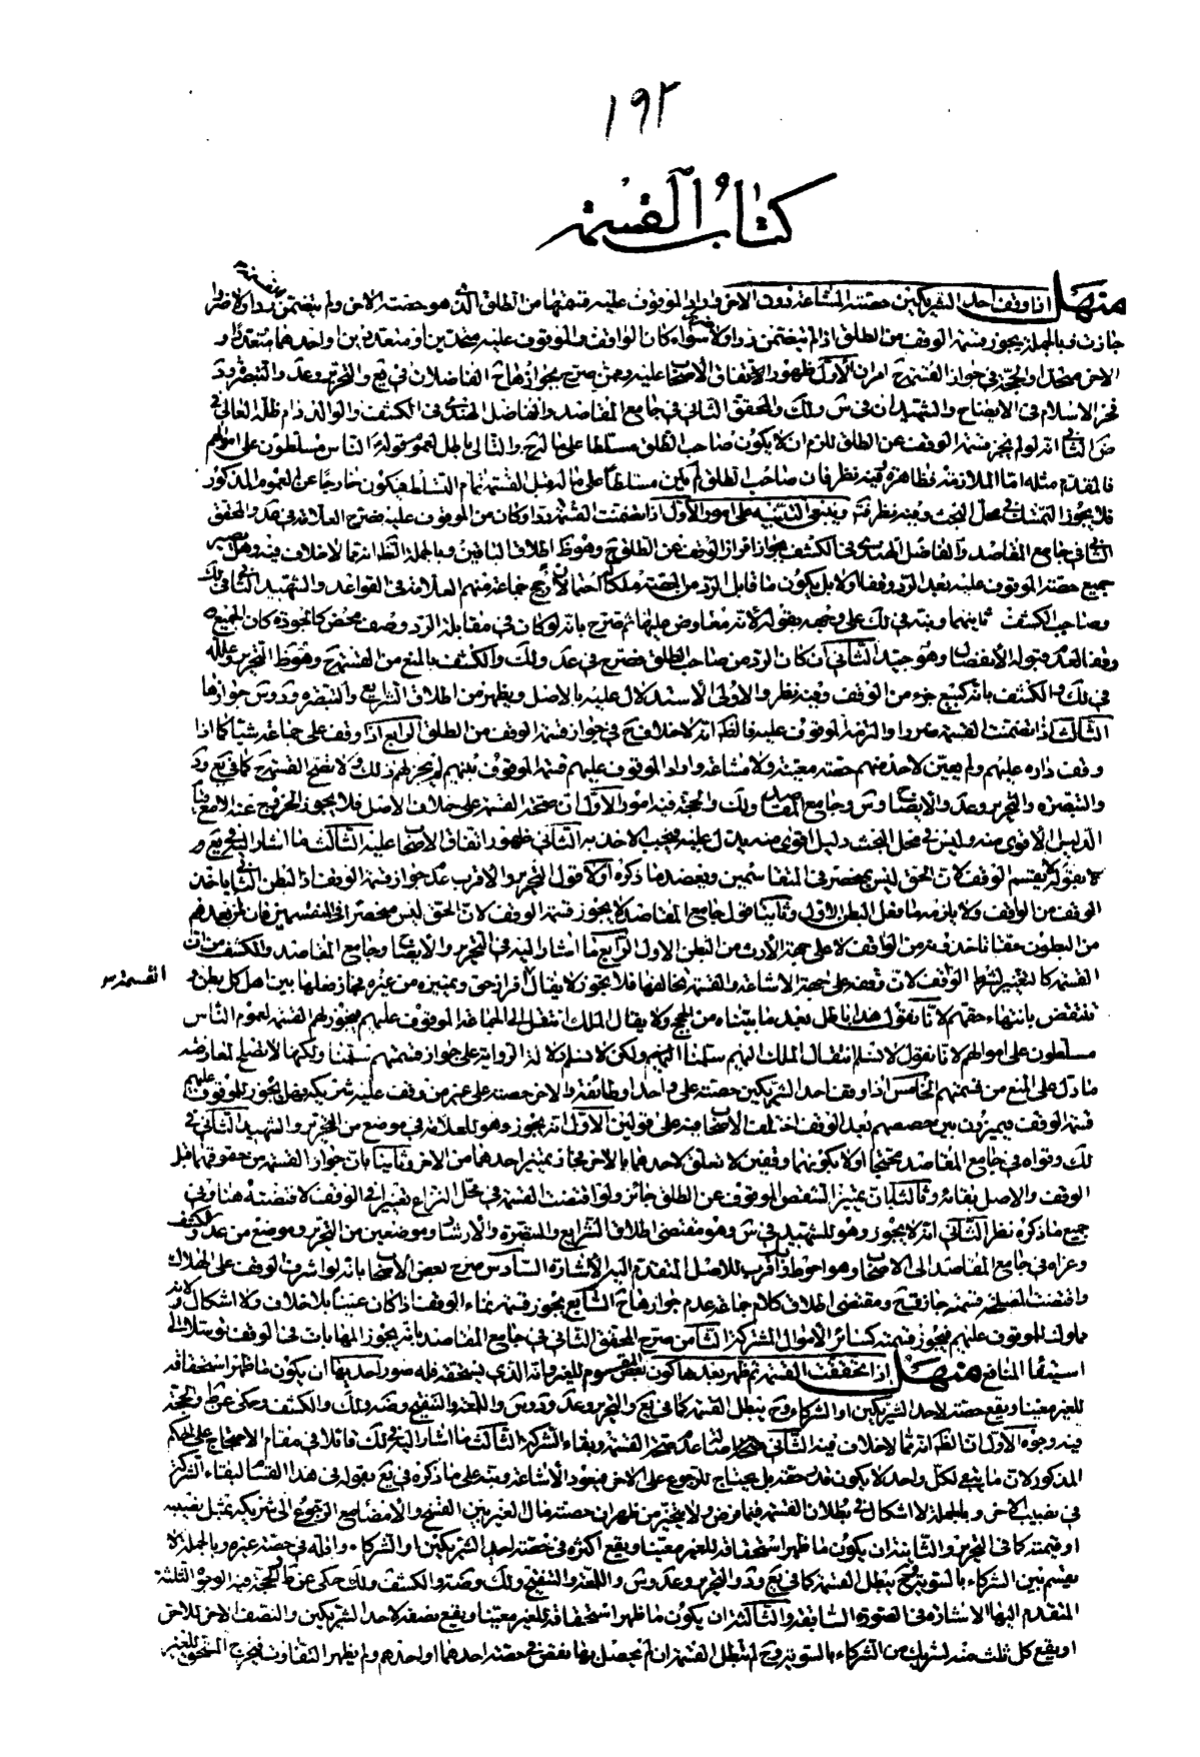 ١٩٢
كتاب القسمة
منهل اذا وقف احد الشريكين حصته المشاعة دون الاخر واراد الموقوف عليه قسمتها من الطلق الذى هو حصته الاخر ولم يتضمن ردا ولا ضررا
جازت وبالجملة يجوز قسمة الوقف من الطلق اذا لم يتضمن ردا ولا سواء كان الواقف والموقوف عليه متحدين او متعددين او احدهما متعددا و
الاخر متحدا والحجة فى جواز القسمة ح امران الاول ظهور الاتفاق الاصحاب عليه وممن صرح بجواز هاتـ الفاضلان فى يع والتحرير وعد والتبصرة و
فخر الاسلام فى الايضاح والشهيدان فى س ولك والمحقق الثانى فى جامع المقاصد والفاضل الهندى فى الكشف والوالد دام ظله العالى فى
الثانى انه لو لم يجز قسمة الوقف عن الطلق للزم ان لا يكون صاحب الطلق مسلطا على ماله والتالى باطل لعموم قوله الناس مسلطون على اموالهم
فالمقدم مثله اما الملازمة فظاهرة وفيه نظر فان صاحب الطلق لم يكن مسلطا على ماله قبل القسمة تمام التسلط فيكون خارجا عن العموم المذكور
فلا يجوز التمسك فى محل البحث وفيه نظر وينبغى التنبيه على امور الاول اذا تضمنت القسمة ردا وكان من الموقوف عليه فصرح العلامة فى عد والمحقق
الثانى فى جامع المقاصد والفاضل الهندى فى الكشف بجواز افراز الوقف عن الطلق ح وهو ظ اطلاق الباقين وبالجملة الظ انه مما لا خلاف فيه وهل يصير
جميع حصته الموقوف عليه بعد الرد وقفا او لا بل يكون ما قابل الرد من الحصة ملكا احتمالان رجح جماعة منهم العلامة فى القواعد والشهيد الثانى فى لك
وصاحب الكشف ثانيهما ونبه فى لك على وجهه بقوله لانه معاوض عليها ثم صرح بانه لو كان فى مقابلة الرد وصف محض كالجودة كان الجميع
وقفا لعدم قبوله الانفصال وهو جيد الثانى ان كان الرد من صاحب الطلق فصرح فى عد ولك والكشف بالمنع من القسمة ح وهو ظ التحرير وعلله
فى لك والكشف بانه كبيع جزء من الوقف وفيه نظر والاولى الاستدلال عليه بالاصل ويظهر من اطلاق الشرايع والتبصرة و س جوازها
الثالث اذا تضمنت القسمة ضررا والتزمه الموقوف عليه فالظ انه لا خلاف ح فى جواز قسمة الوقف من الطلق الرابع اذا وقف على جماعة شيئا كما اذا
وقف داره عليهم ولم يعين لاحد منهم حصة معينة ولا مشاعة واراد الموقوف عليهم قسمة الموقوف بينهم لم يجز لهم ذلك ولا تصح القسمة ح كما فى يع و
والتبصرة والتحرير وعد والايضاح وس وجامع المقاصد ولك والحجة فيه امور الاول ان صحة القسمة على خلاف الاصل فلا يجوز الخروج عنه الا مع
الدليل الاقوى منه وليس فى محل البحث دليل اقوى منه يدل عليه فيجب الاخذ به الثانى ظهور اتفاق الاصحاب عليه الثالث ما اشار اليه فى يع و
لا بقوله لا يقسم الوقف لان الحق ليس بمنحصر فى المتقاسمين ويعضده ما ذكره اولا قول التحرير والاقرب عدم جواز قسمة الوقف اذ البطن الثانى ياخذ
الوقف من الواقف ولا يلزمه ما فعل البطن الاول وثانيا قول جامع المقاصد لا يجوز قسمة الوقف لان الحق ليس منحصرا فى المقتسمين فان لمن بعدهم
من البطون حقا تاخذونه من الواقف لا على جهة الارث من البطن الاول الرابع ما اشار اليه فى التحرير والايضاح وجامع المقاصد والكشف من ان
القسمة كالتغيير لشرط الواقف لانه وقف على جهة الاشاعة والقسمة تخالفها فلا يجوز لا يقال افراز حق وتمييزه من غيره فجاز فعلها بين اهل كل بطن و
القسمة
تنتقض بانتهاء حقهم لانا نقول هذا باطل بعد ما بيناه من الحجج ولا يقال الملك انتقل الى الجماعة الموقوف عليهم فيجوز لهم القسمة لعموم الناس
مسلطون على اموالهم لانا نقول لا نسلم انتقال الملك اليهم سلمنا اليهم ولكن لا نسلم دلالة الرواية على جواز قسمتهم سلمنا ولكنها لا تصلح لمعارضة
ما دل على المنع من قسمتهم الخامس اذا وقف احد الشريكين حصته على واحد او طائفة والاخر حصته على غير من وقف عليه شريكه فهل يجوز للموقوف عليهم
قسمة الوقف فيميزون بين حصصهم بعد الوقف اختلف الاصحاب فيه على قولين الاول انه يجوز وهو للعلامة فى موضع من التحرير والشهيد الثانى فى
لك وقواه فى جامع المقاصد محتجا اولا بكونهما وقفين لا تعلق لاحدهما بالاخر فجاز تمييز احدهما من الاخر وثانيا بان جواز القسمة من حقوقهما قبل
الوقف والاصل بقائه وثالثا بان تمييز الشقص الموقوف عن الطلق جائز ولو اقتضت القسمة فى محل النزاع تغييرا فى الوقف لاقتضته هنا وفى
جميع ما ذكره نظر الثانى انه لا يجوز وهو للشهيد فى س وهو مقتضى اطلاق الشرايع والتبصرة والارشاد وموضعين من التحرير وموضع من عد والكشف
وعزاه فى جامع المقاصد الى الاصحاب وهو احوط بل اقرب للاصل المتقدم اليه الاشارة السادس صرح بعض الاصحاب بانه لو اشرف الوقف على الهلاك
واقتضت المصلحة قسمته جاز قسمته ح ومقتضى اطلاق كلام جماعة عدم جوازها ح السابع يجوز قسمة نماء الوقف اذا كان عينا بلا خلاف ولا اشكال لانه
مملوك للموقوف عليهم فيجوز قسمته كسائر الاموال المشتركة الثامن صرح المحقق الثانى فى جامع المقاصد بانه يجوز المهاياة فى الوقف توسلا الى
استيفاء المنافع منهل اذا تحققت القسمة ثم ظهر بعدها كون بعض المقسوم للغير وانه الذى يستحقه فله صور احدها ان يكون ما ظهر استحقاقه
للغير معينا ويقع حصته لاحد الشريكين او الشركاء وح يبطل القسمة كما فى يع والتحرير وعد و س واللمعة والتنقيح وضه ولك والكشف وحكى عن ط والحجة
فيه وجوه الاول ان الظ انه مما لا خلاف فيه الثانى اصالة عدم صحة القسمة وبقاء الشركة الثالث ما اشار اليه فى لك قائلا فى مقام الاحتجاج على الحكم
المذكور لان ما يبقى لكل واحد لا يكون قدر حقه بل يحتاج للرجوع على الاخر فتعود الاشاعة ونبه على ما ذكره فى يع بقوله فى هذا القسم لبقاء الشركة
فى نصيب الاخر وبالجملة لا اشكال فى بطلان القسمة فيما فرض ولا يتخير من ظهر ان حصته مال الغير بين الفسخ والامضاء مع الرجوع الى شريكه بمثل نصيبه
او قيمته كما فى التحرير والثانية ان يكون ما ظهر استحقاقه للغير معينا ويقع اكثره فى حصة احد الشريكين او الشركاء واقله فى حصة غيره وبالجملة لا
يقسم بين الشركاء بالسوية وح يبطل القسمة كما فى يع و والتحرير وعد وس واللمعة والتنقيح ولك وضه والكشف ولك حكى عن ط والحجة فيه الوجوه الثلثة
المتقدم اليها الاشارة فى الصورة السابقة والثالثة ان يكون ما ظهر استحقاقه للغير معينا ويقع نصفه لاحد الشريكين والنصف الاخر للاخر
او يقع كل ثلث منه لشريك من الشركاء بالسوية وح لم تبطل القسمة ان لم يحصل بها نقص فى حصة احدهما او احدهم ولم يظهر التفاوت فيخرج المستحق للغير